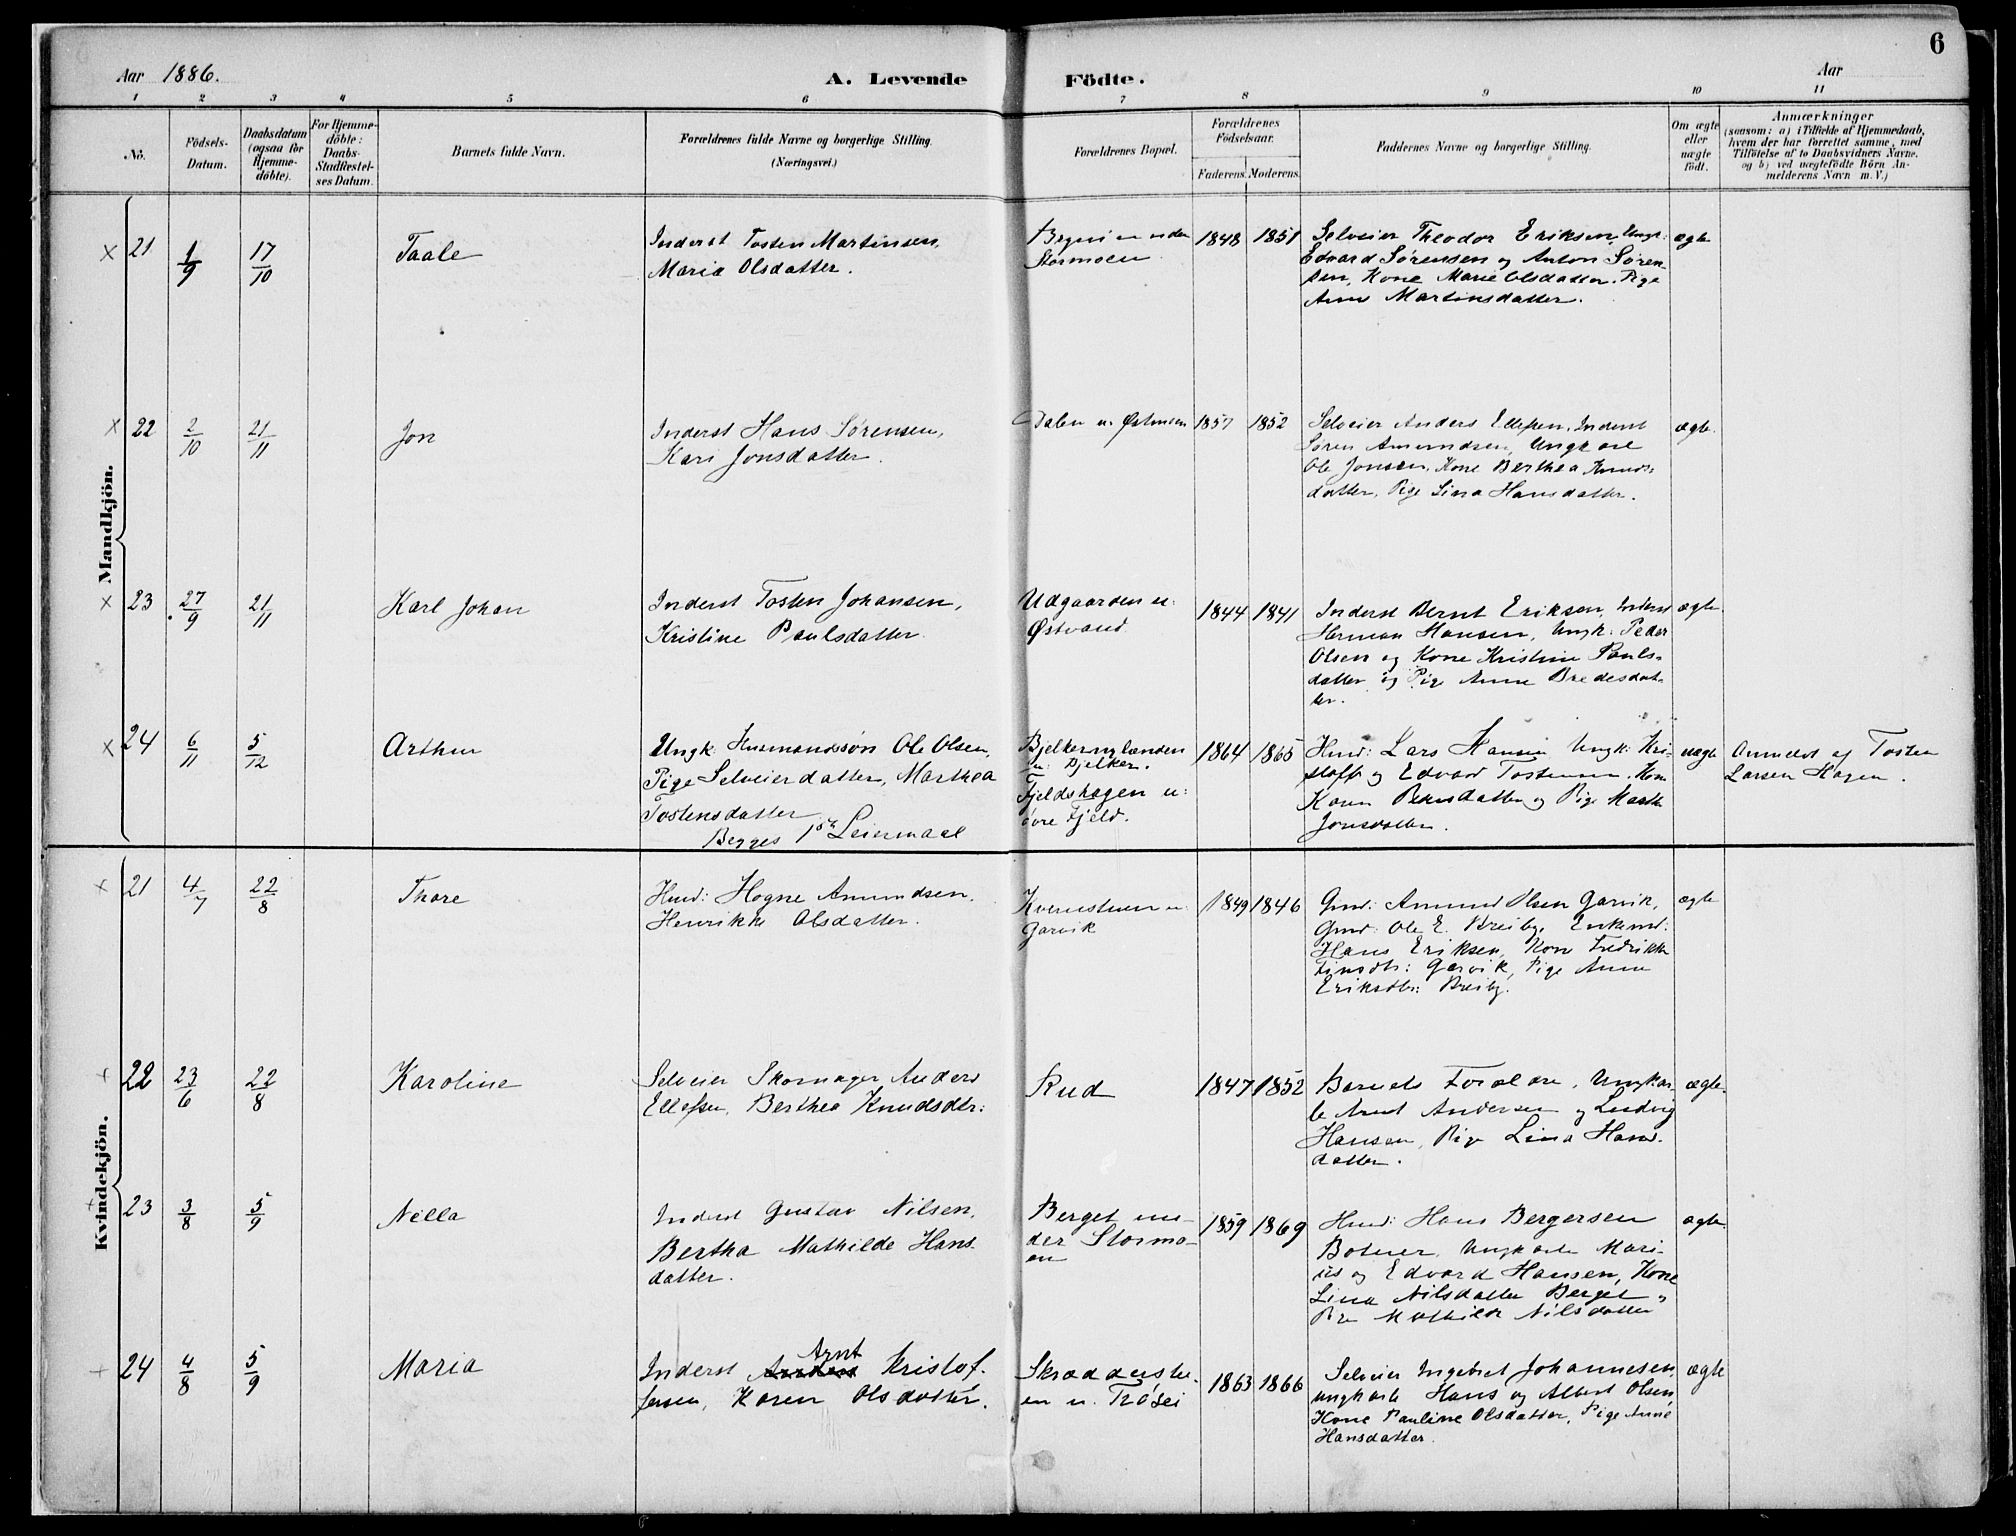 6
Aar 1886.
A. Levende Födte.
Aar
1 2 3 4 5 6 7 8 9 10 11
No.
Födsels-
Datum.
Daabsdatum
(ogsaa for
Hjemme-
döbte).
For Hjemme-
döbte:
Daabs-
Stadfæstel-
ses Datum.
Barnets fulde Navn.
Forældrenes fulde Navne og borgerlige Stilling.
(Næringsvei.)
Forældrenes Bopæl.
Forældrenes
Födselsaar.
Faderens. Moderens.
Faddernes Navne og borgerlige Stilling.
Om ægte
eller
uægte
födt.
Anmærkninger
(saasom: a) i Tilfælde af Hjemmedaab,
hvem der har forrettet samme, med
Tilföielse af to Daabsvidners Navne.
og b) ved uægtefödte Börn An-
melderens Navn m. V.)
Mandkjön.
× 21
1/9
17/10
Taale
Inderst Tosten Martinsen,
Maria Olsdatter.
Stormoen
1848 1851
Selveier Theodor Eriksen, Ungk:
Edvard Sørensen og Anton Søren-
sen, Kone Marie Olsdatter. Pige
Anne Martinsdatter.
ægte
× 22
2/10
21/11
Jon
Inderst Hans Sørensen,
Kari Jonsdatter.
Dalen u. Østmoen
1857 1852
Selveier Anders Ellefsen, Inderst
Søren Amundsen, Ungkarl
Ole Jonsen, Kone Berthea Knuds-
datter, Pige Lina Hansdatter.
ægte.
× 23
27/9
21/11
Karl Johan
Inderst Tosten Johansen,
Kristine Paulsdatter.
Udgaarden u:
Østvand.
1844 1841
Inderst Bernt Eriksen, Inderst
Herman Hansen, Ungk: Peder
Olsen og Kone Kristine Pauls-
datter og Pige Anne Bredesdat-
ter.
ægte.
× 24
6/11
5/12
Arthur
Ungk: Husmandssøn Ole Olsen,
Pige Selveierdatter, Marthea
Tostensdatter
Begges 1ste Leiermaal
Bjelkernylænden
u: Bjelker.
Fjeldshagen u:
øvre Fjeld.
1864 1865
Husd: Lars Hansen Ungk: Kri-
stoff og Edvard Tostensen. Kone
Karen Pedersdatter og Pige Marthe
Jonsdatter.
uægte
Anmeldt af Tosten
Larsen Hagen.
Kvindekjön.
× 21
4/7
22/8
Thore
Husd: Hogne Amundsen.
Henrikke Olsdatter.
Kvernstuen u:
Garvik
1849 1846
Gmd: Amund Olsen Garvik,
Gmd: Ole E. Breiby, Enkemd:
Hans Eriksen, Kone Fredrikke
Finsdtr: Garvik, Pige Anne
Eriksdtr: Breiby.
ægte
22
23/6
22/8
Karoline
Selveier Skomager Anders
Ellefsen, Berthea Knudsdtr:
Rud
1847 1852
Barnets Forældre, Ungkar-
le Arnt Andersen og Ludvig
Hansen, Pige Lina Hans-
datter.
ægte.
23
3/8
5/9
Nella
Inderst Gustav Nilsen,
Bertha Mathilde Hans-
datter.
Berget un-
der Stormo-
en
1859 1869
Husd: Hans Bergersen
Ungkarle Mari-
us og Edvard Hansen, Kone
Lina Nilsdatter Berget,
Pige Mathilde Nilsdatter
ægte.
24
4/8
5/9
Maria
Arnt
Inderst Anders Kristof-
fersen, Karen Olsdatter.
Skrædderstu-
en u. Trøsei
1863 1866
Selveier Ingebret Johannesen,
ungkarle Hans og Albert Olsen,
Kone Pauline Olsdatter, Pige Anne
Hansdatter.
ægte